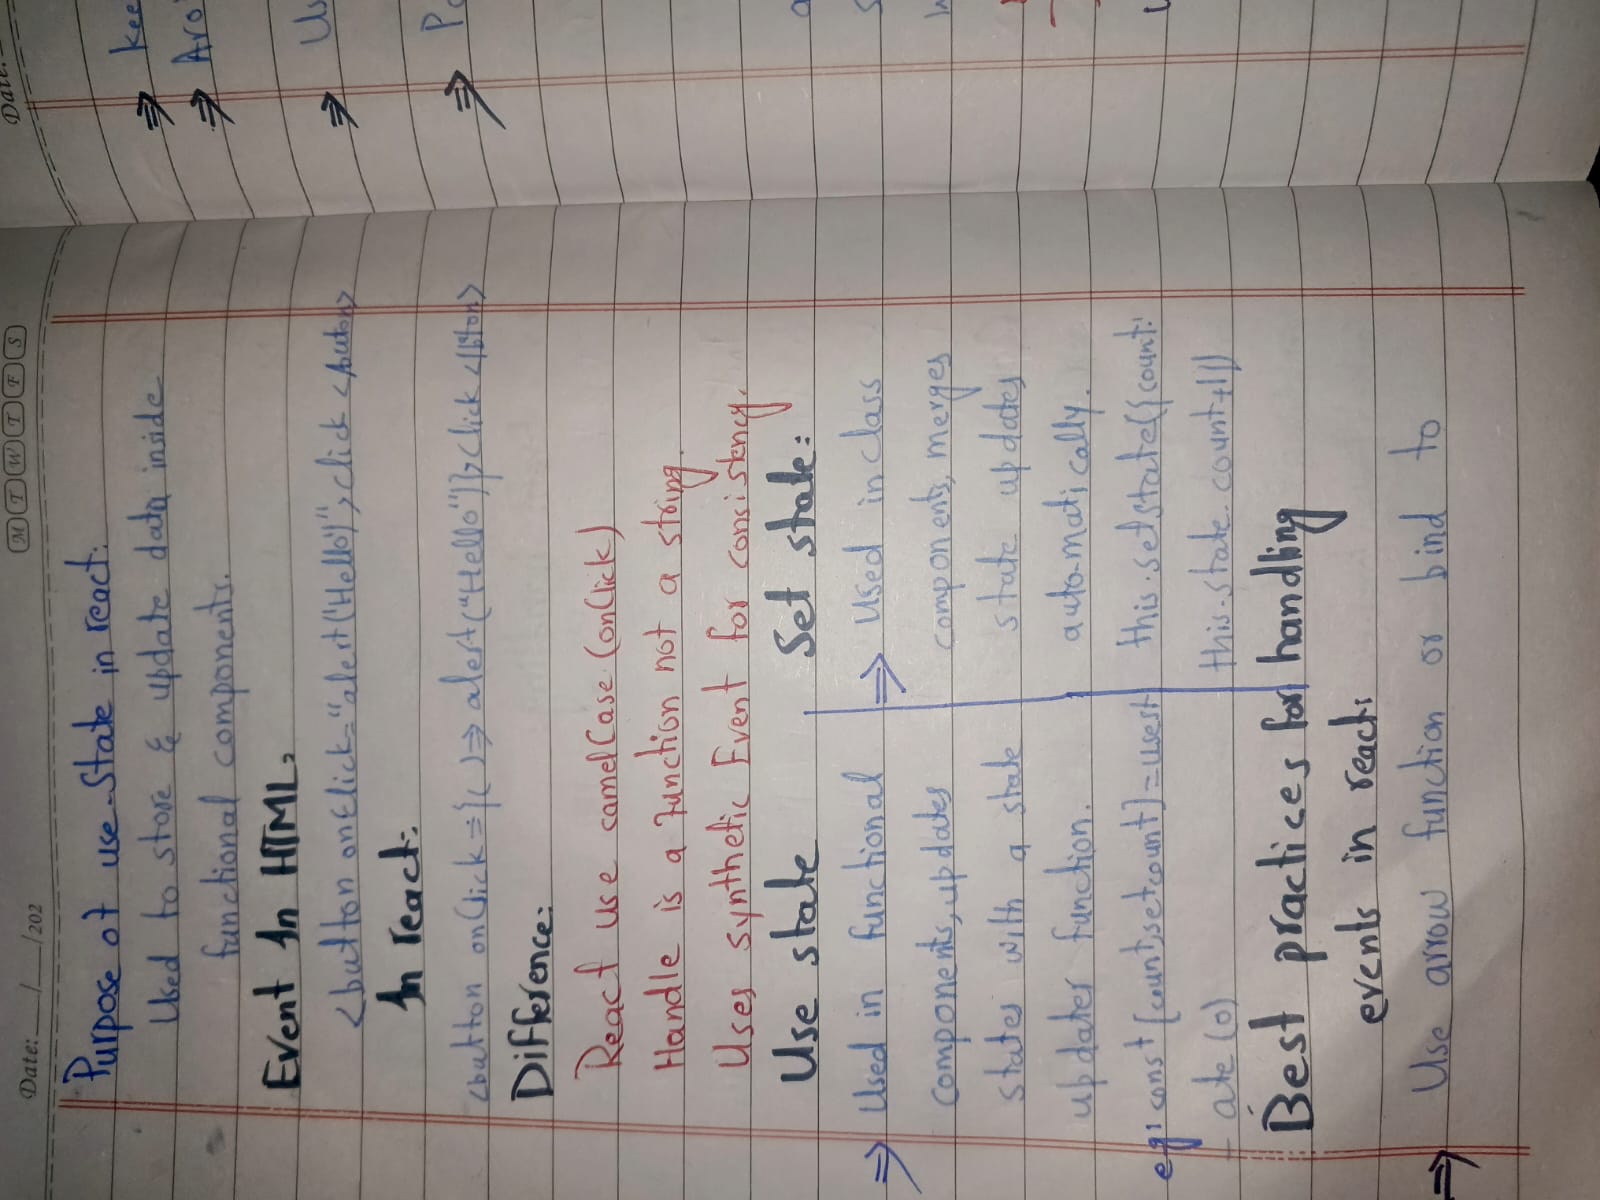 Date: __/__/202
M T W T F S
Purpose of use-State in react:
Used to store & update data inside
functional components.
Event In HTML,
<button onclick="alert("Hello")",click </button>
In react:
<button onClick={()=>alert("Hello")}>click </btton>
Difference:
React use camelCase (onClick)
Handle is a function not a string.
Uses synthetic Event for consistency.
Use state
⇒ Used in functional
components, updates
states with a state
updater function.
eg: const [count,setcount]=usest
- ate(0)
Set state:
⇒ Used in class
components, merges
state updates
auto-matically.
this.setstate({count:
this.state.count+1})
Best practices for handling
events in react:
⇒ Use arrow function or bind to
Date:
⇒ kee
⇒ Aro
⇒ Us
⇒